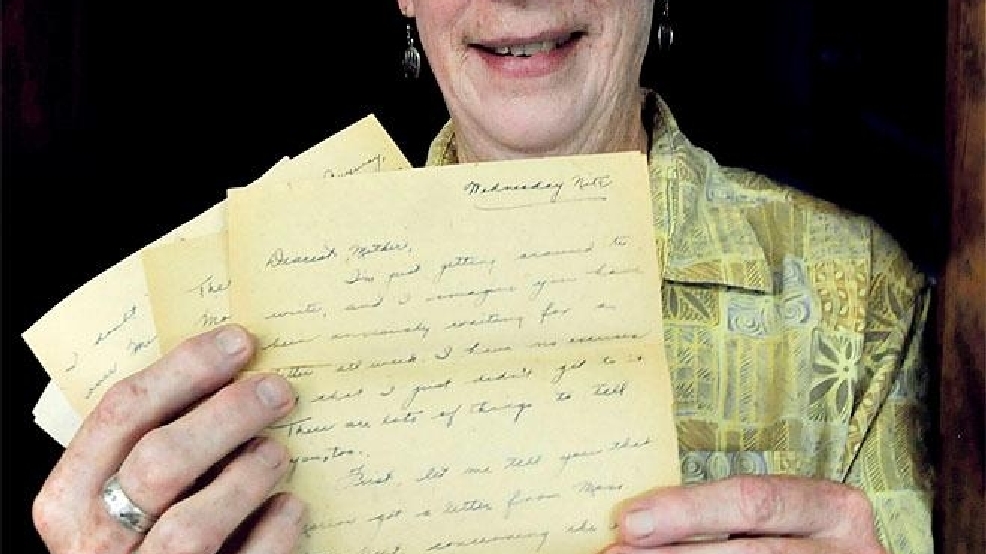 Wednesday Nite
Dearest Mother,
I'm just getting around to
write, and I imagine you have
been anxiously waiting for a
letter all week. I have no excuses
that I just didn't get to it.
There are lots of things to tell
you, too.
First, let me tell you that
got a letter from
concerning the
The
I doubt